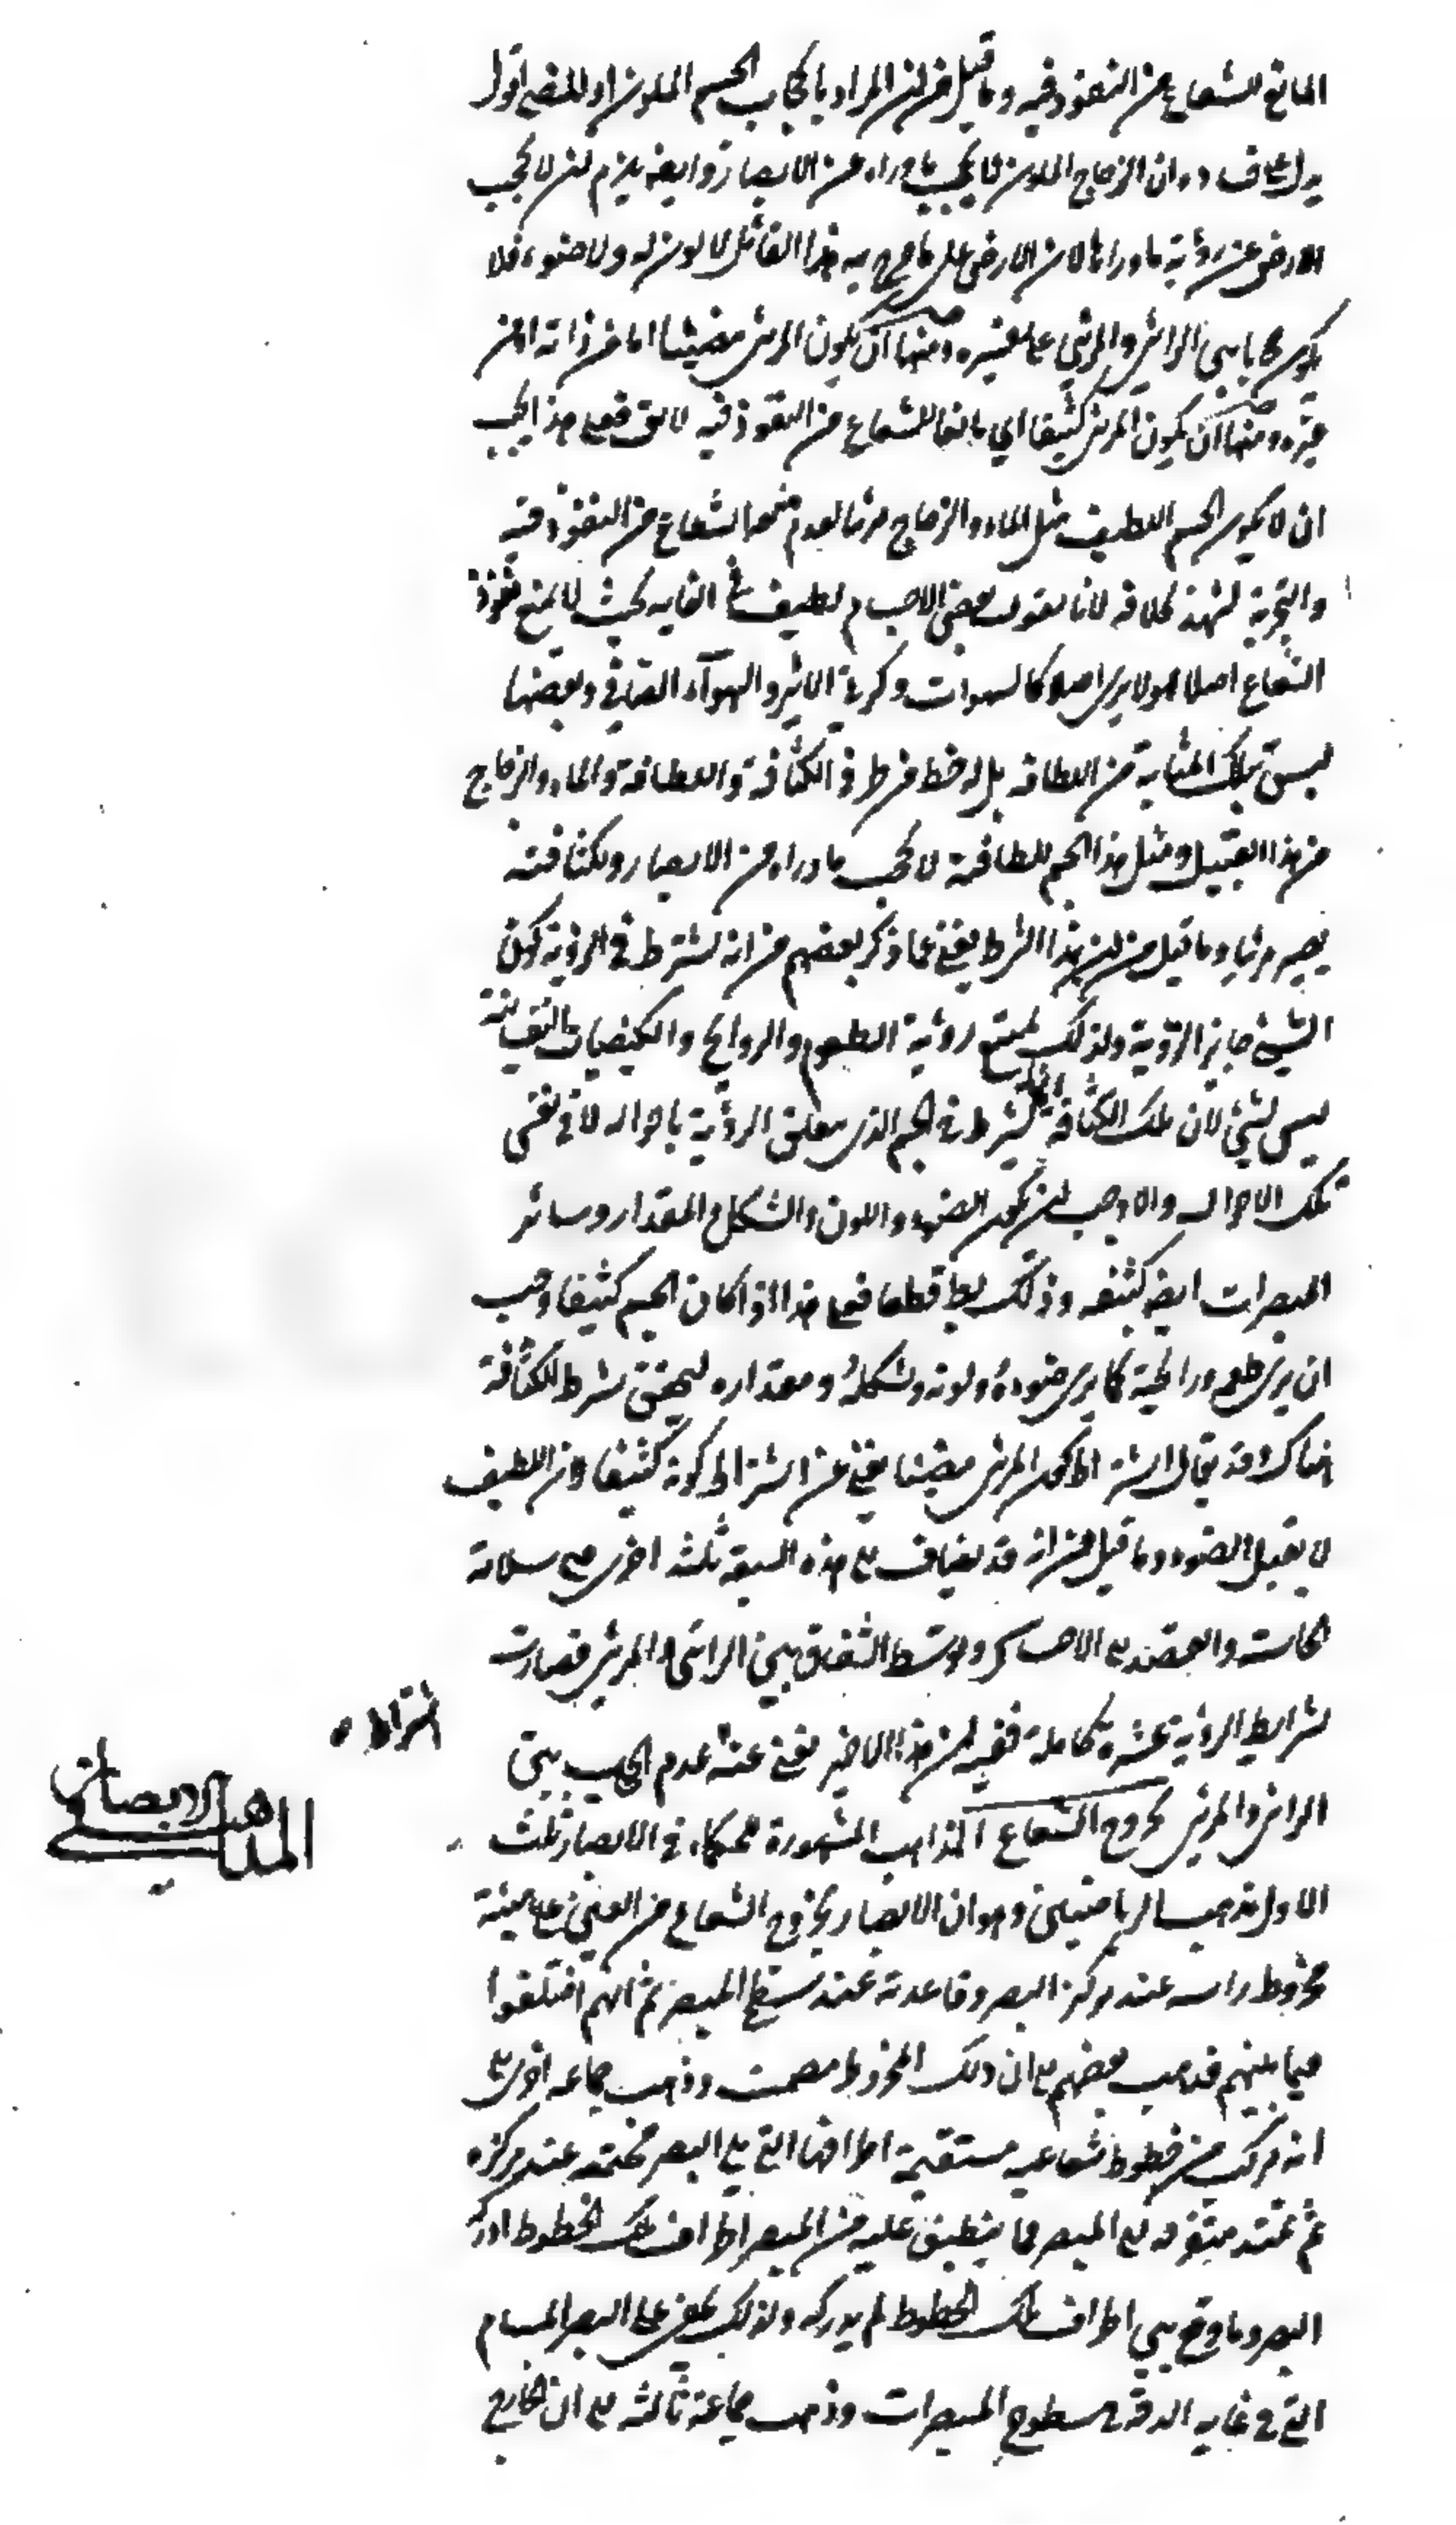 المانع للشعاع من النفوذ فيه وما قيل من ان المراد بالحجاب الجسم الملون او المضئ اقول
يدل على فساده ان الزجاج الملون لا يحجب ما وراه عن الابصار وايضا يلزم ان لا يحجب
الارض عن رؤية ما ورائها لان الارض على ما صرح به هذا القائل لا لون له ولا ضوء فلا
يكون حجابا بين الرائي والمرئي على تفسيره ومنها ان يكون المرئي مضيئا اما من ذاته او من
غيره ومنها ان يكون المرئي كثيفا اي مانعا للشعاع من النفوذ فيه لا يقال فعلى هذا يجب
ان لا يكون الجسم اللطيف مثل الماء والزجاج مرئيا لعدم منعه الشعاع من النفوذ فيه
والتجربة تشهد بخلافه لانا نقول بعض الاجسام لطيف في الغاية بحيث لا يمنع نفوذ
الشعاع اصلا فهو لا يرى اصلا كالسموات وكرة الاثير والهواء الصافي وبعضها
ليس بتلك المثابة من اللطافة بل له حظ من الكثافة واللطافة والماء والزجاج
من هذا القبيل ومثل هذا الجسم للطافته لا يحجب ما وراه من الابصار ولكثافته
يصير مرئيا وما قيل من ان هذا الشرط يغني عما ذكر بعضهم من انه يشترط في الرؤية كون
الشئ جايز الرؤية ولذلك يمتنع رؤية الطعوم والروايح والكيفيات النفسانية
ليس بشئ لان تلك الكثافة انما يشترط في الجسم الذي يتعلق الرؤية باحواله لا في نفس
تلك الاحوال والا وجب ان يكون الضوء واللون والشكل والمقدار وسائر
المبصرات ايضا كثيفة وذلك بط قطعا فعلى هذا اذا كان الجسم كثيفا وجب
ان يرى طعمه ورايحته كما يرى ضوءه ولونه وشكله ومقداره لتحقق شرط الكثافة
هناك وقد يقال اشتراط كون المرئي مضيئا يغني عن اشتراط كونه كثيفا لان اللطيف
لا يقبل الضوء وما قيل من انه قد يضاف الى هذه السبعة ثلثة اخرى هي سلامة
الحاسة والقصد الى الاحساس وتوسط الشفاف بين الرائي والمرئي فصارت
شرايط الرؤية عشرة كاملة ففيه ان هذا الاخير يغني عنه عدم الحجاب بين
اشتراط
الرائي والمرئي بخروج الشعاع المذاهب المشهورة للحكماء في الابصار ثلث
المذاهب في الابصار
الاول مذهب الرياضيين وهو ان الابصار بخروج الشعاع من العين على هيئة
مخروط راسه عند مركز البصر وقاعدته عند سطح المبصر ثم انهم اختلفوا
فيما بينهم فذهب بعضهم الى ان ذلك المخروط مصمت وذهب جماعة اخرى الى
انه مركب من خطوط شعاعية مستقيمة اطرافها التي يلي البصر مجتمعة عند مركزه
ثم تمتد متفرقة الى المبصر فما ينطبق عليه من المبصر اطراف تلك الخطوط ادركه
البصر وما وقع بين اطراف تلك الخطوط لم يدركه ولذلك يخفى على البصر المسام
التي في غاية الدقة في سطوح المبصرات وذهب جماعة ثالثة الى ان الخارج